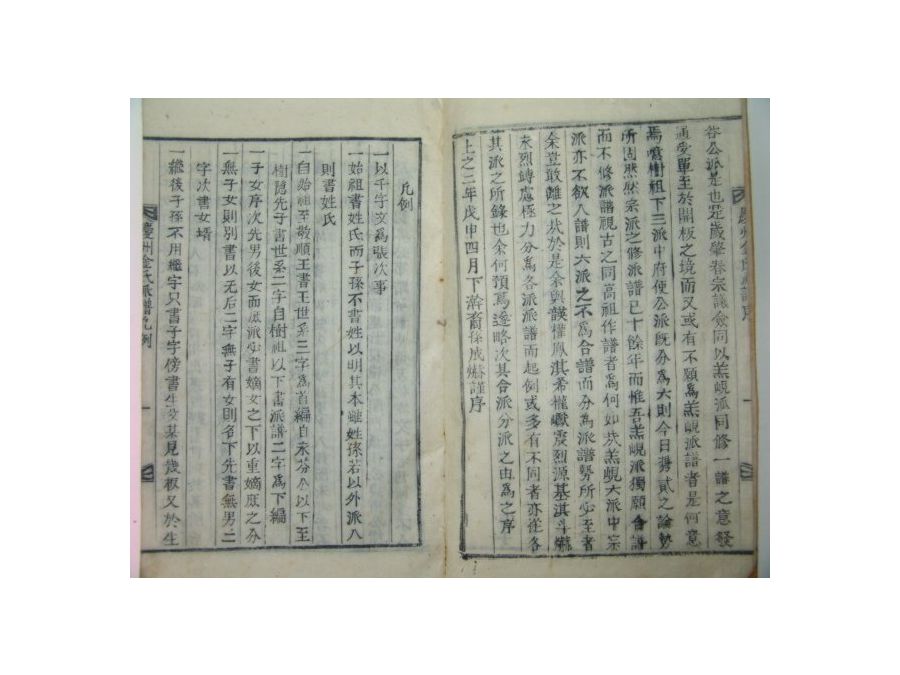 谷公派是也寔歲肇春宗議僉同以羔峴派同修一譜之意發
通受單至於開板之境而又或有不願爲羔峴派譜者是何意
焉噫樹祖下三派中府使公派旣分爲六則今日携貳之論勢
所固然然宗派之修派譜已十餘年而惟吾羔峴派獨願合譜
而不修派譜視古之同高祖作譜者爲何如哉羔峴六派中宗
派亦不欲入譜則六派之不爲合譜而分爲派譜勢所必至者
余豈敢離之哉於是余與 權鳳淇希權 震烈源基淇斗爀
永烈 處極力分爲各派派譜而起例或多有不同者亦從各
其派之所錄也余何預焉遂略次其合派分派之由爲之序
上之二年戊申四月下澣裔孫成爀謹序
慶州金氏派譜序
一
凡例
一以千字文爲張次事
一始祖書姓氏而子孫不書姓以明其本雖姓孫若以外派入
則書姓氏
一自始祖至敬順王書王世系三字爲首編自永芬公以下至
樹隱先子書世系二字自樹祖以下書派譜二字爲下編
一子女序次先男後女而 派必書嫡女之下以重嫡庶之分
一無子女則別書以无后二字無子有女則名下先書無男二
字次書女壻
一繼後子孫不用繼字只書子字傍書生父某見幾板又於生
慶州金氏派譜凡例
一